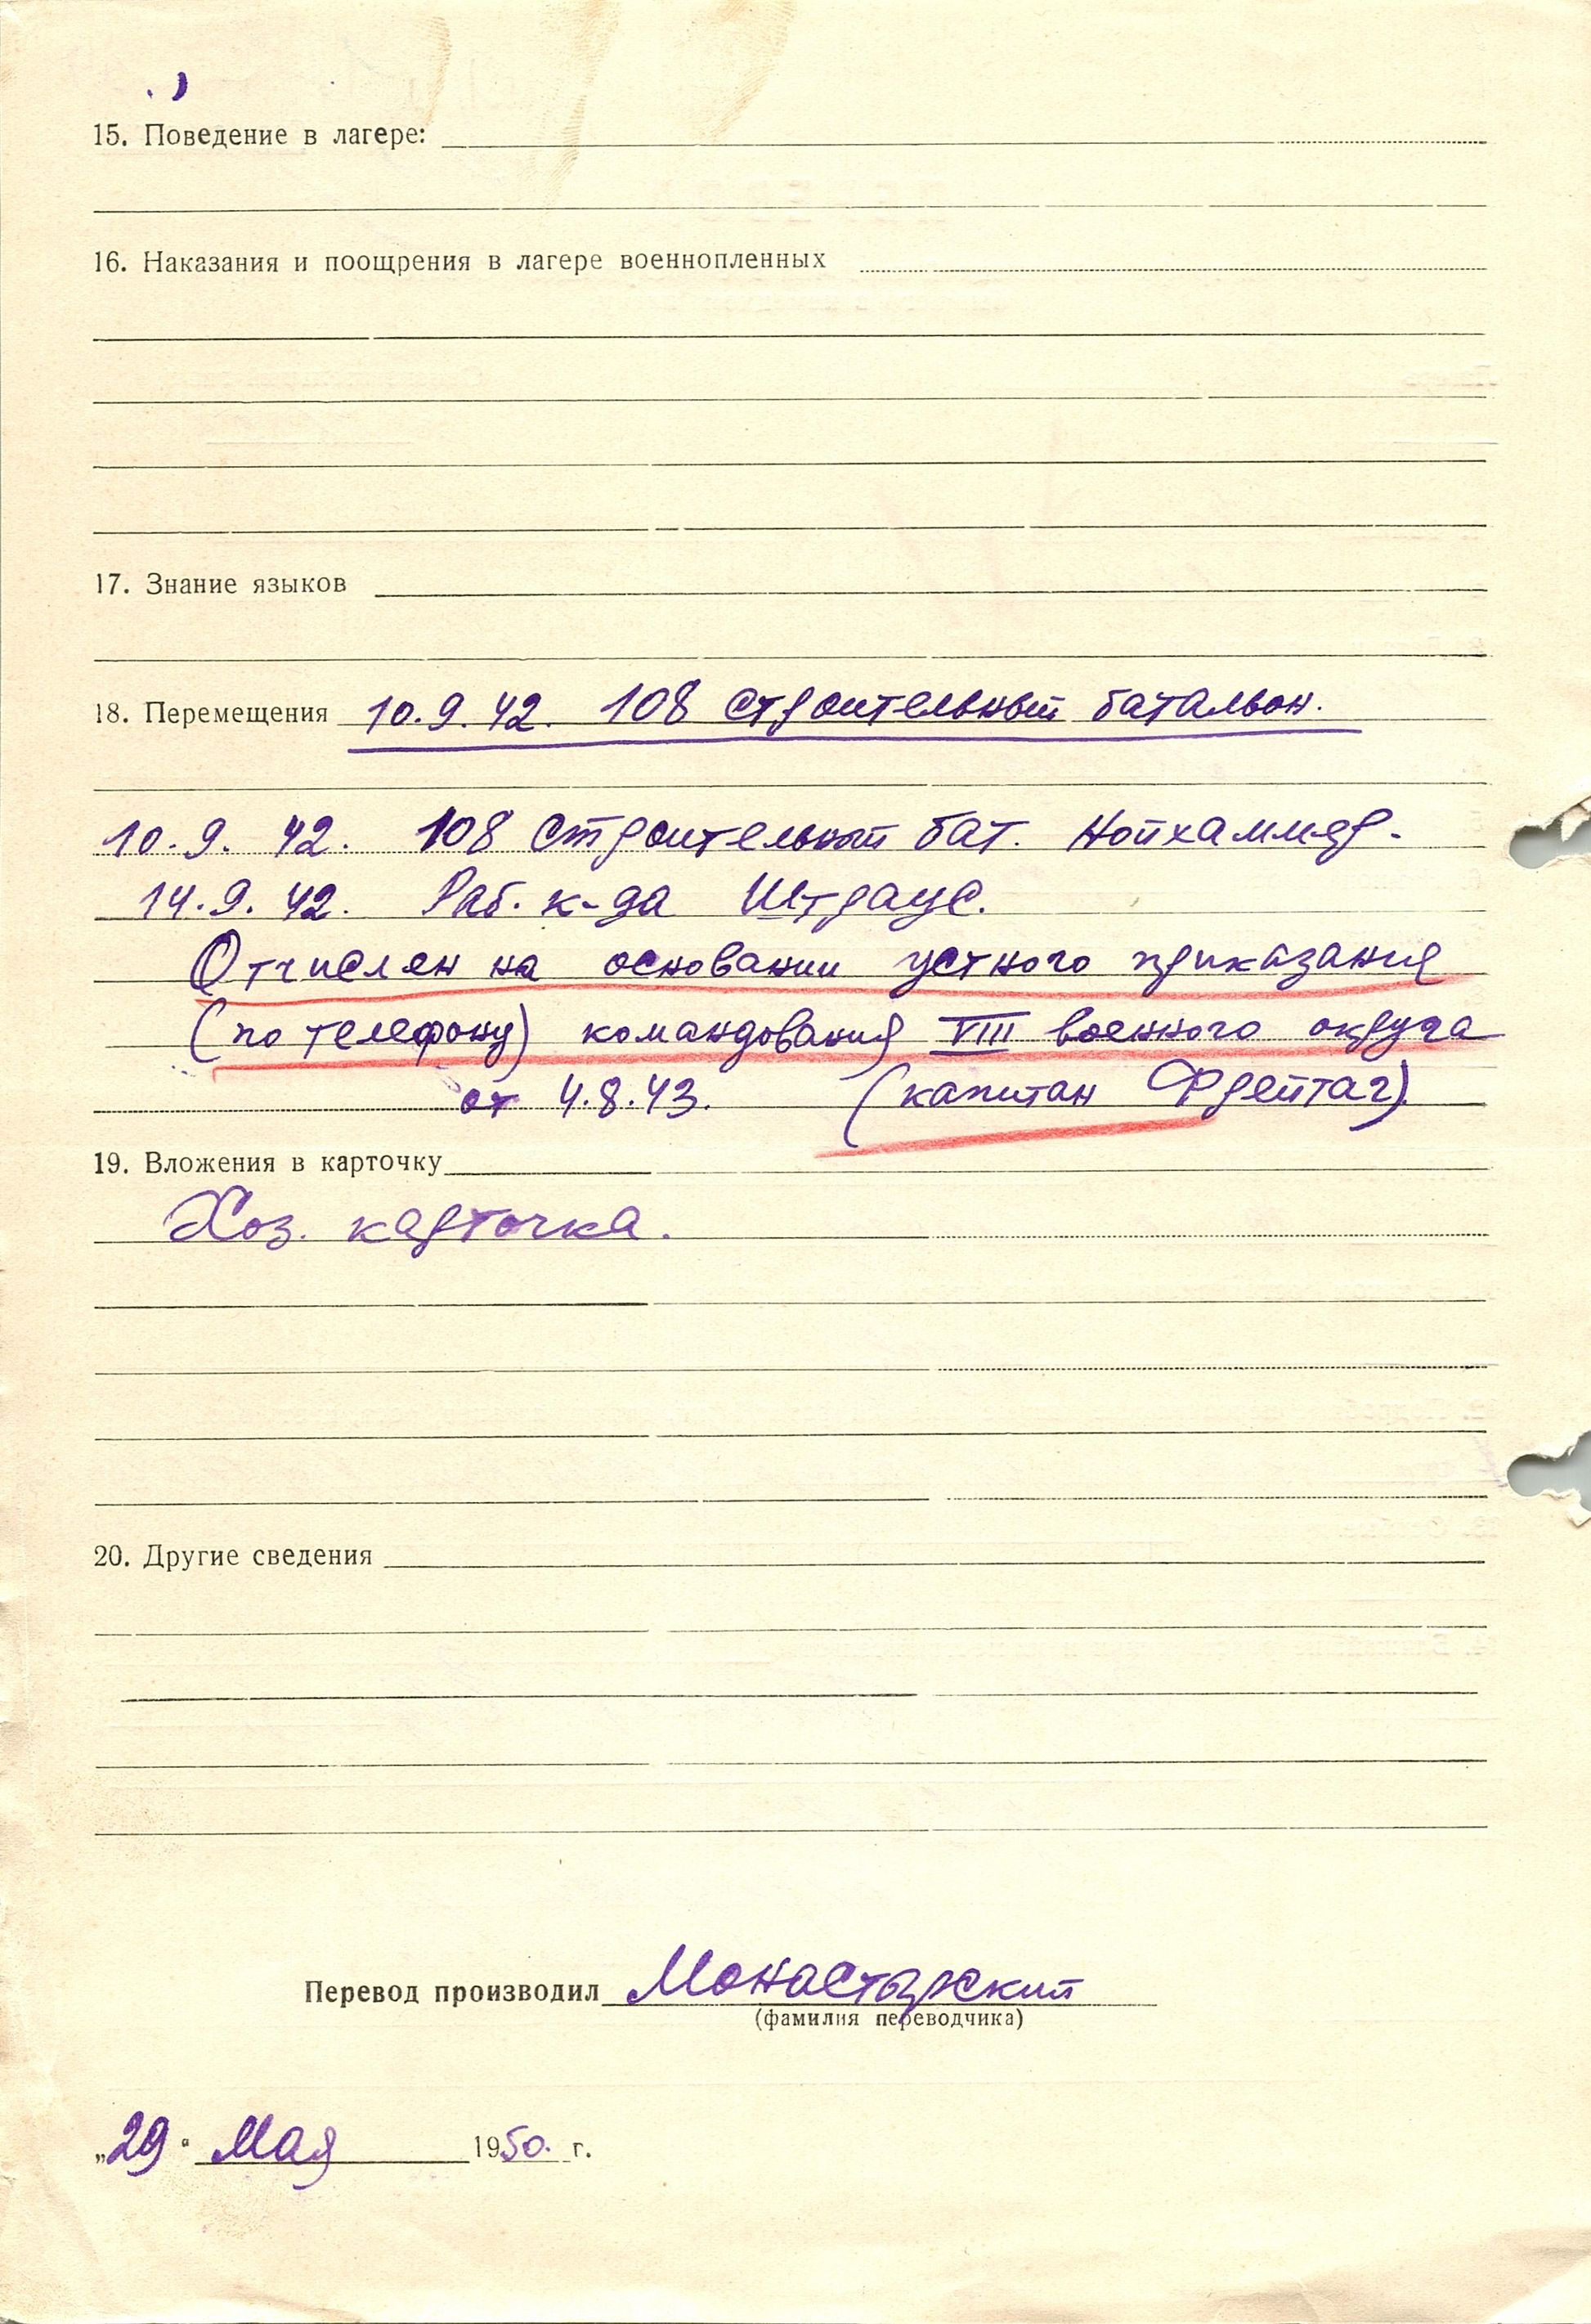 15. Поведение в лагере:
16. Наказания и поощрения в лагере военнопленных
17. Знание языков
18. Перемещения 10.9.42. 108 строительный батальон.
10.9. 42. 108 строительный бат. Нойхаммер.
14.9.42. Раб. к-да Штраус.
Отчислен на основании устного приказания
(по телефону) командования VIII военного округа
от 4.8.43. (капитан Фрейтаг).
19. Вложения в карточку
Хоз. карточка.
20. Другие сведения
Перевод производил Монастырский
(фамилия переводчика)
„29" Мая 1950. г.